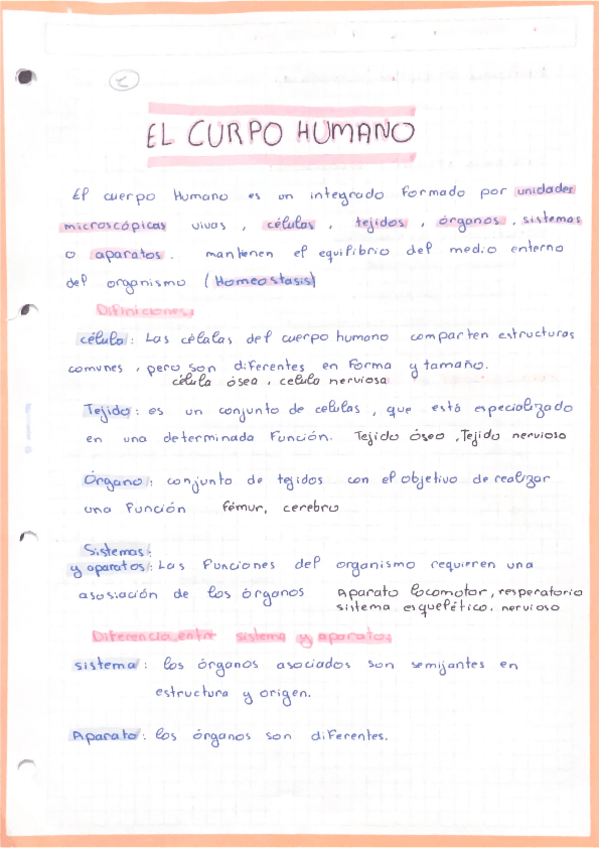 EL CURPO HUMANO
El cuerpo Humano es un integrado formado por unidades
microscópicas vivas, células, tejidos, órganos, sistemas
o aparatos. mantienen el equilibrio del medio enterno
del organismo (Homeostasis)
Difiniciones
célula: Las célalas del cuerpo humano comparten estructuras
comunes, pero son diferentes en forma y tamaño.
célula ósea, celula nerviosa
Tejido: es un conjunto de celulas, que está especializado
en una determinada Función. Tejido óseo, Tejido nervioso
Órgano: conjunto de tejidos con el objetivo de realizar
una Función fémur, cerebro
Sistemas
y aparatos: Las Funciones del organismo requieren una
asosiación de los órganos Aparato locomotor, resperatorio
sistema esquelético. nervioso
Diferencia entr sistema y aparatos
sistema: los órganos asociados son semijantes en
estructura y origen.
Aparato: los órganos son diferentes.